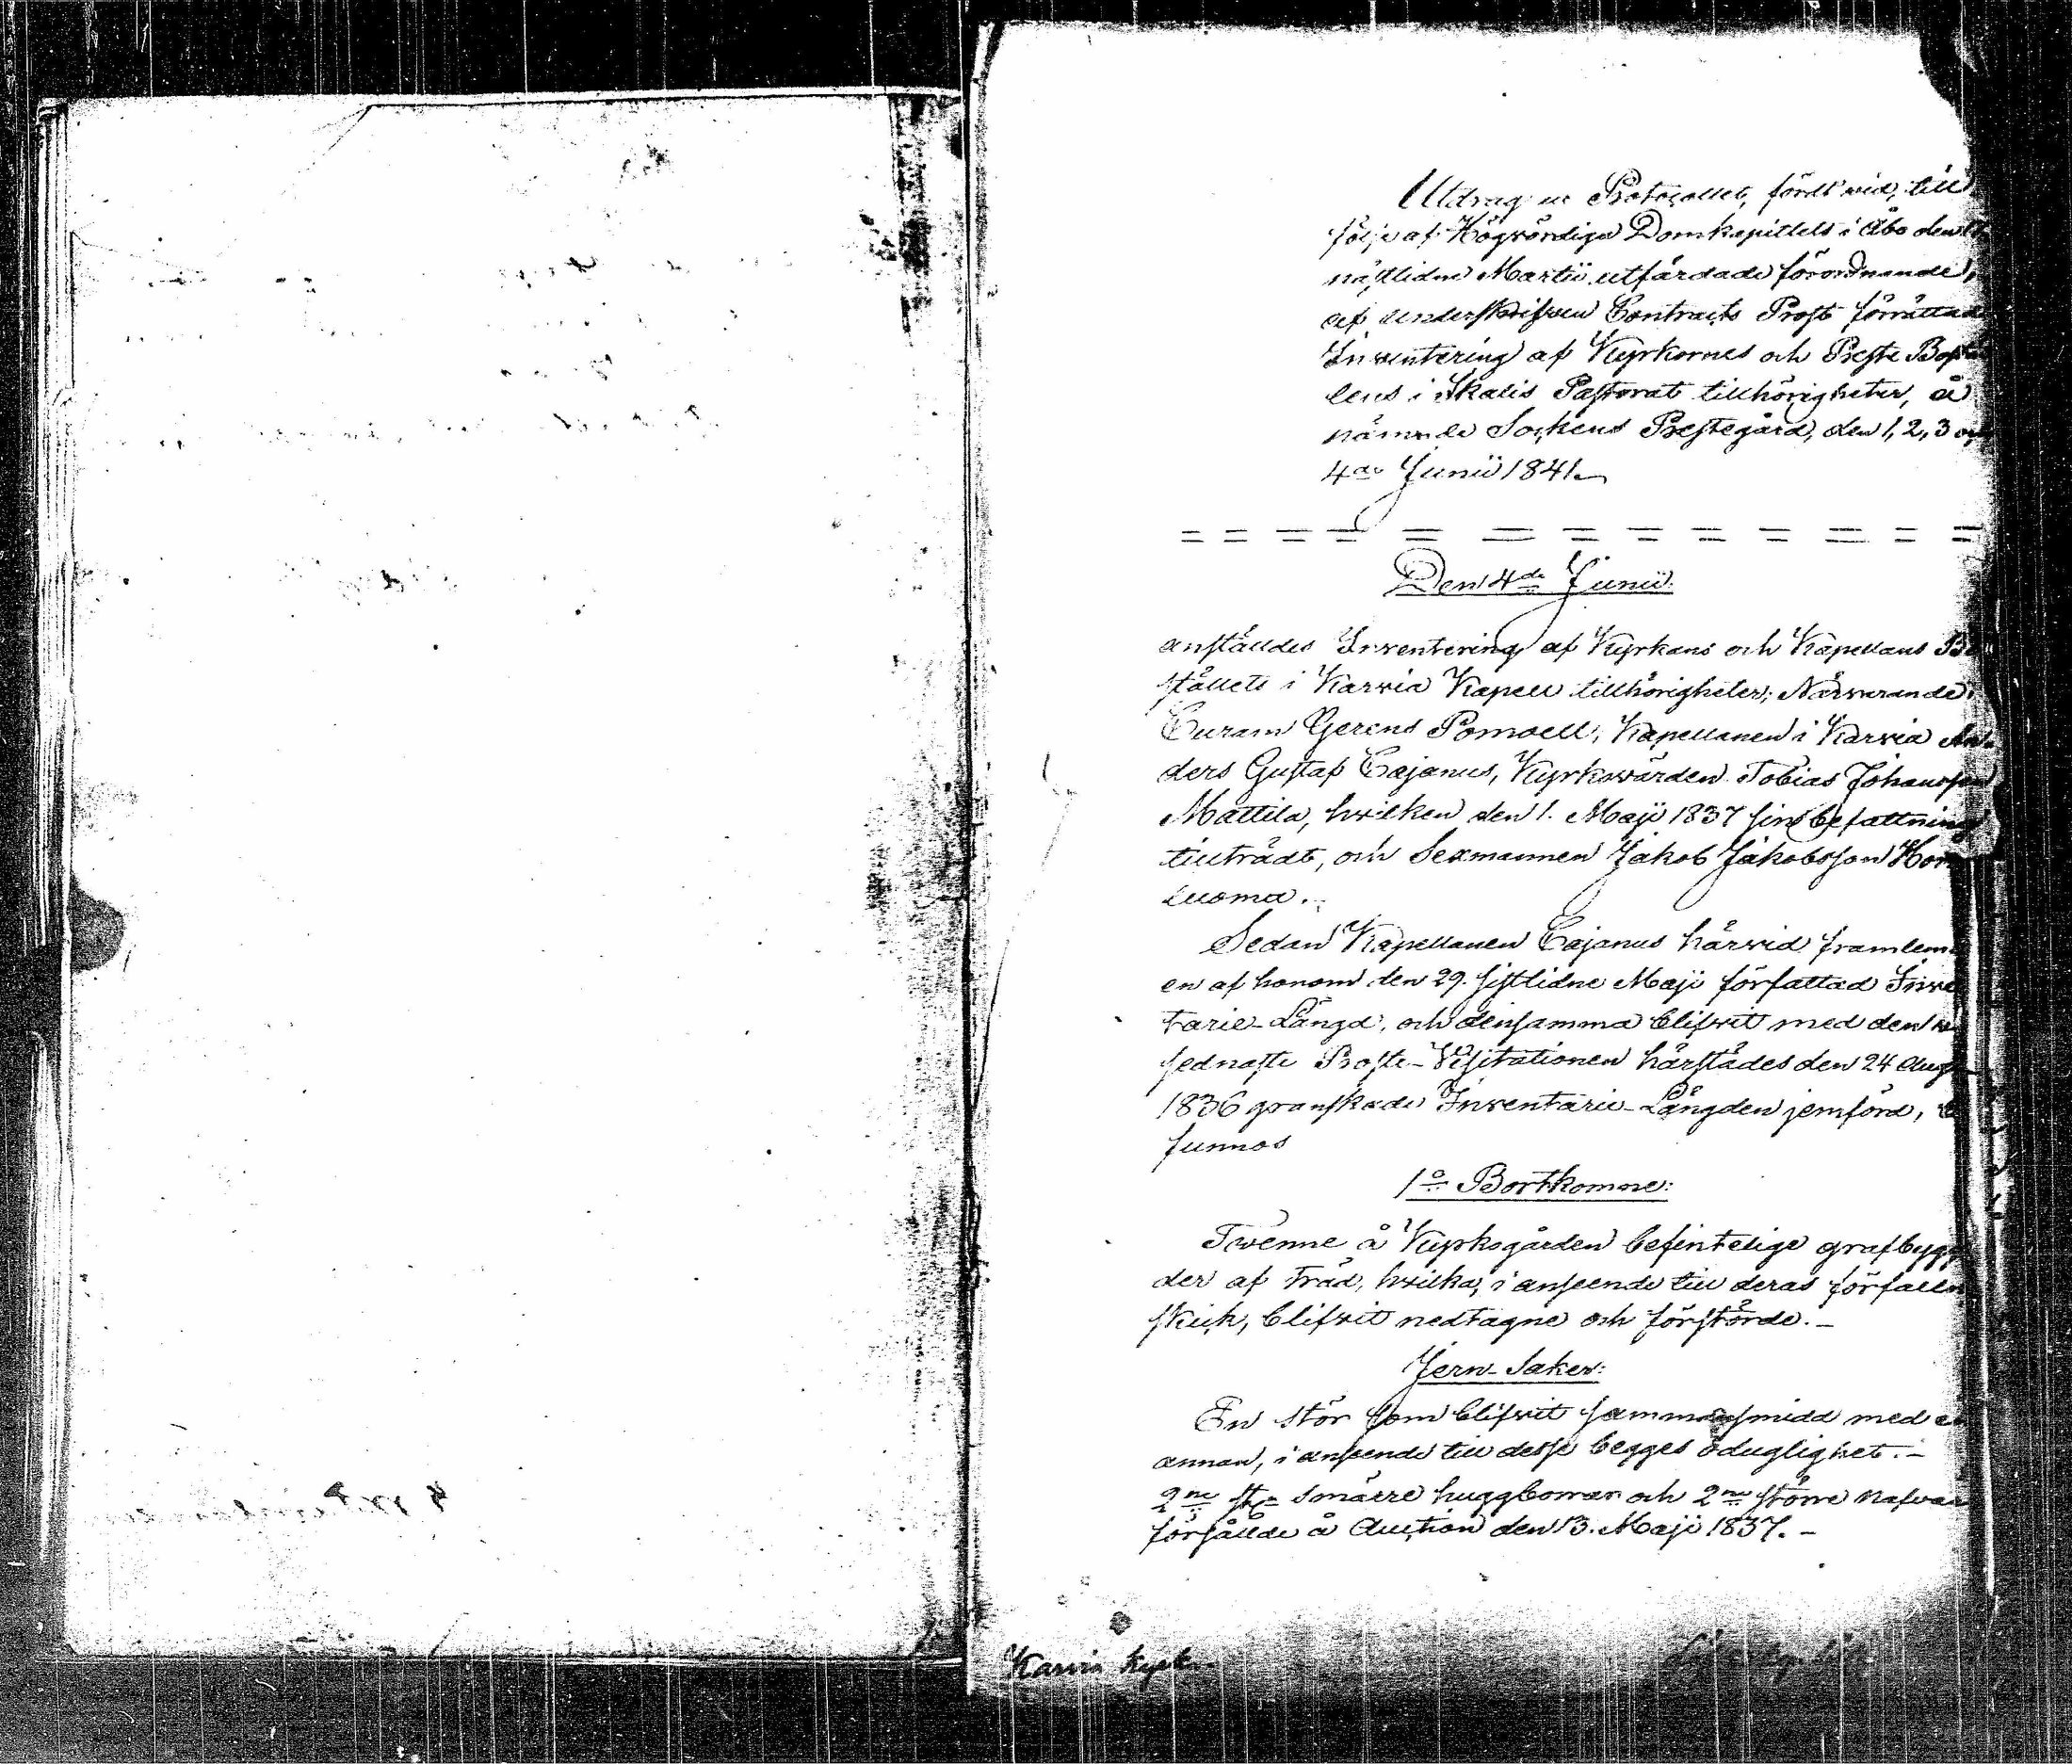 Utdrag ur Protocollet, fördt vid, till
följe af Högvördiga Domkapitlets i Åbo den
nästlidne Martii utfärdade förordnande,
af underskrifven Contracts Prost förrättad
Inventering af Kyrkornes och Preste Bostä
lens i Ikalis Pastorat tillhörigheter, å
nämnde Sockens Prestegård, den 1, 2, 3 och
4de Junii 1841.
Den 4de Junii.
anställdes Inventering af Kyrkans och Kapellans Bo
ställets i Karvia Kapell tillhörigheter; Närvarande:
Curam Gerens Pomoell, Kapellanen i Karvia An-
ders Gustaf Cajanus, Kyrkovärden Tobias Johansson
Mattila, hvilken den 1. Maji 1837 sin befattning
tillträdt, och Sexmannen Jakob Jakobsson Hon
luoma.
Sedan Kapellanen Cajanus härvid framlem
en af honom den 29. sistlidne Maji författad Inve
tarie-Längd, och densamma blifvit med den
sednaste Proste-Visitationen härstädes den 24 Aug
1836 granskade Inventarie-Längden jemförd,
funnos
1o Bortkomne:
Tvenne å Kyrkogården befintelige grafbygg
der af träd, hvilka, i anseende till deras förfalln
skick, blifvit nedtagne och förstörde.-
Jern-Saker:
En stör som blifvit sammansmidd med en
annan, i anseende till desse begges oduglighet.-
2ne st. smärre huggborrar och 2ne större nafvar
försållde å Auction den 13. Maji 1837.-
Karvia Kyrk